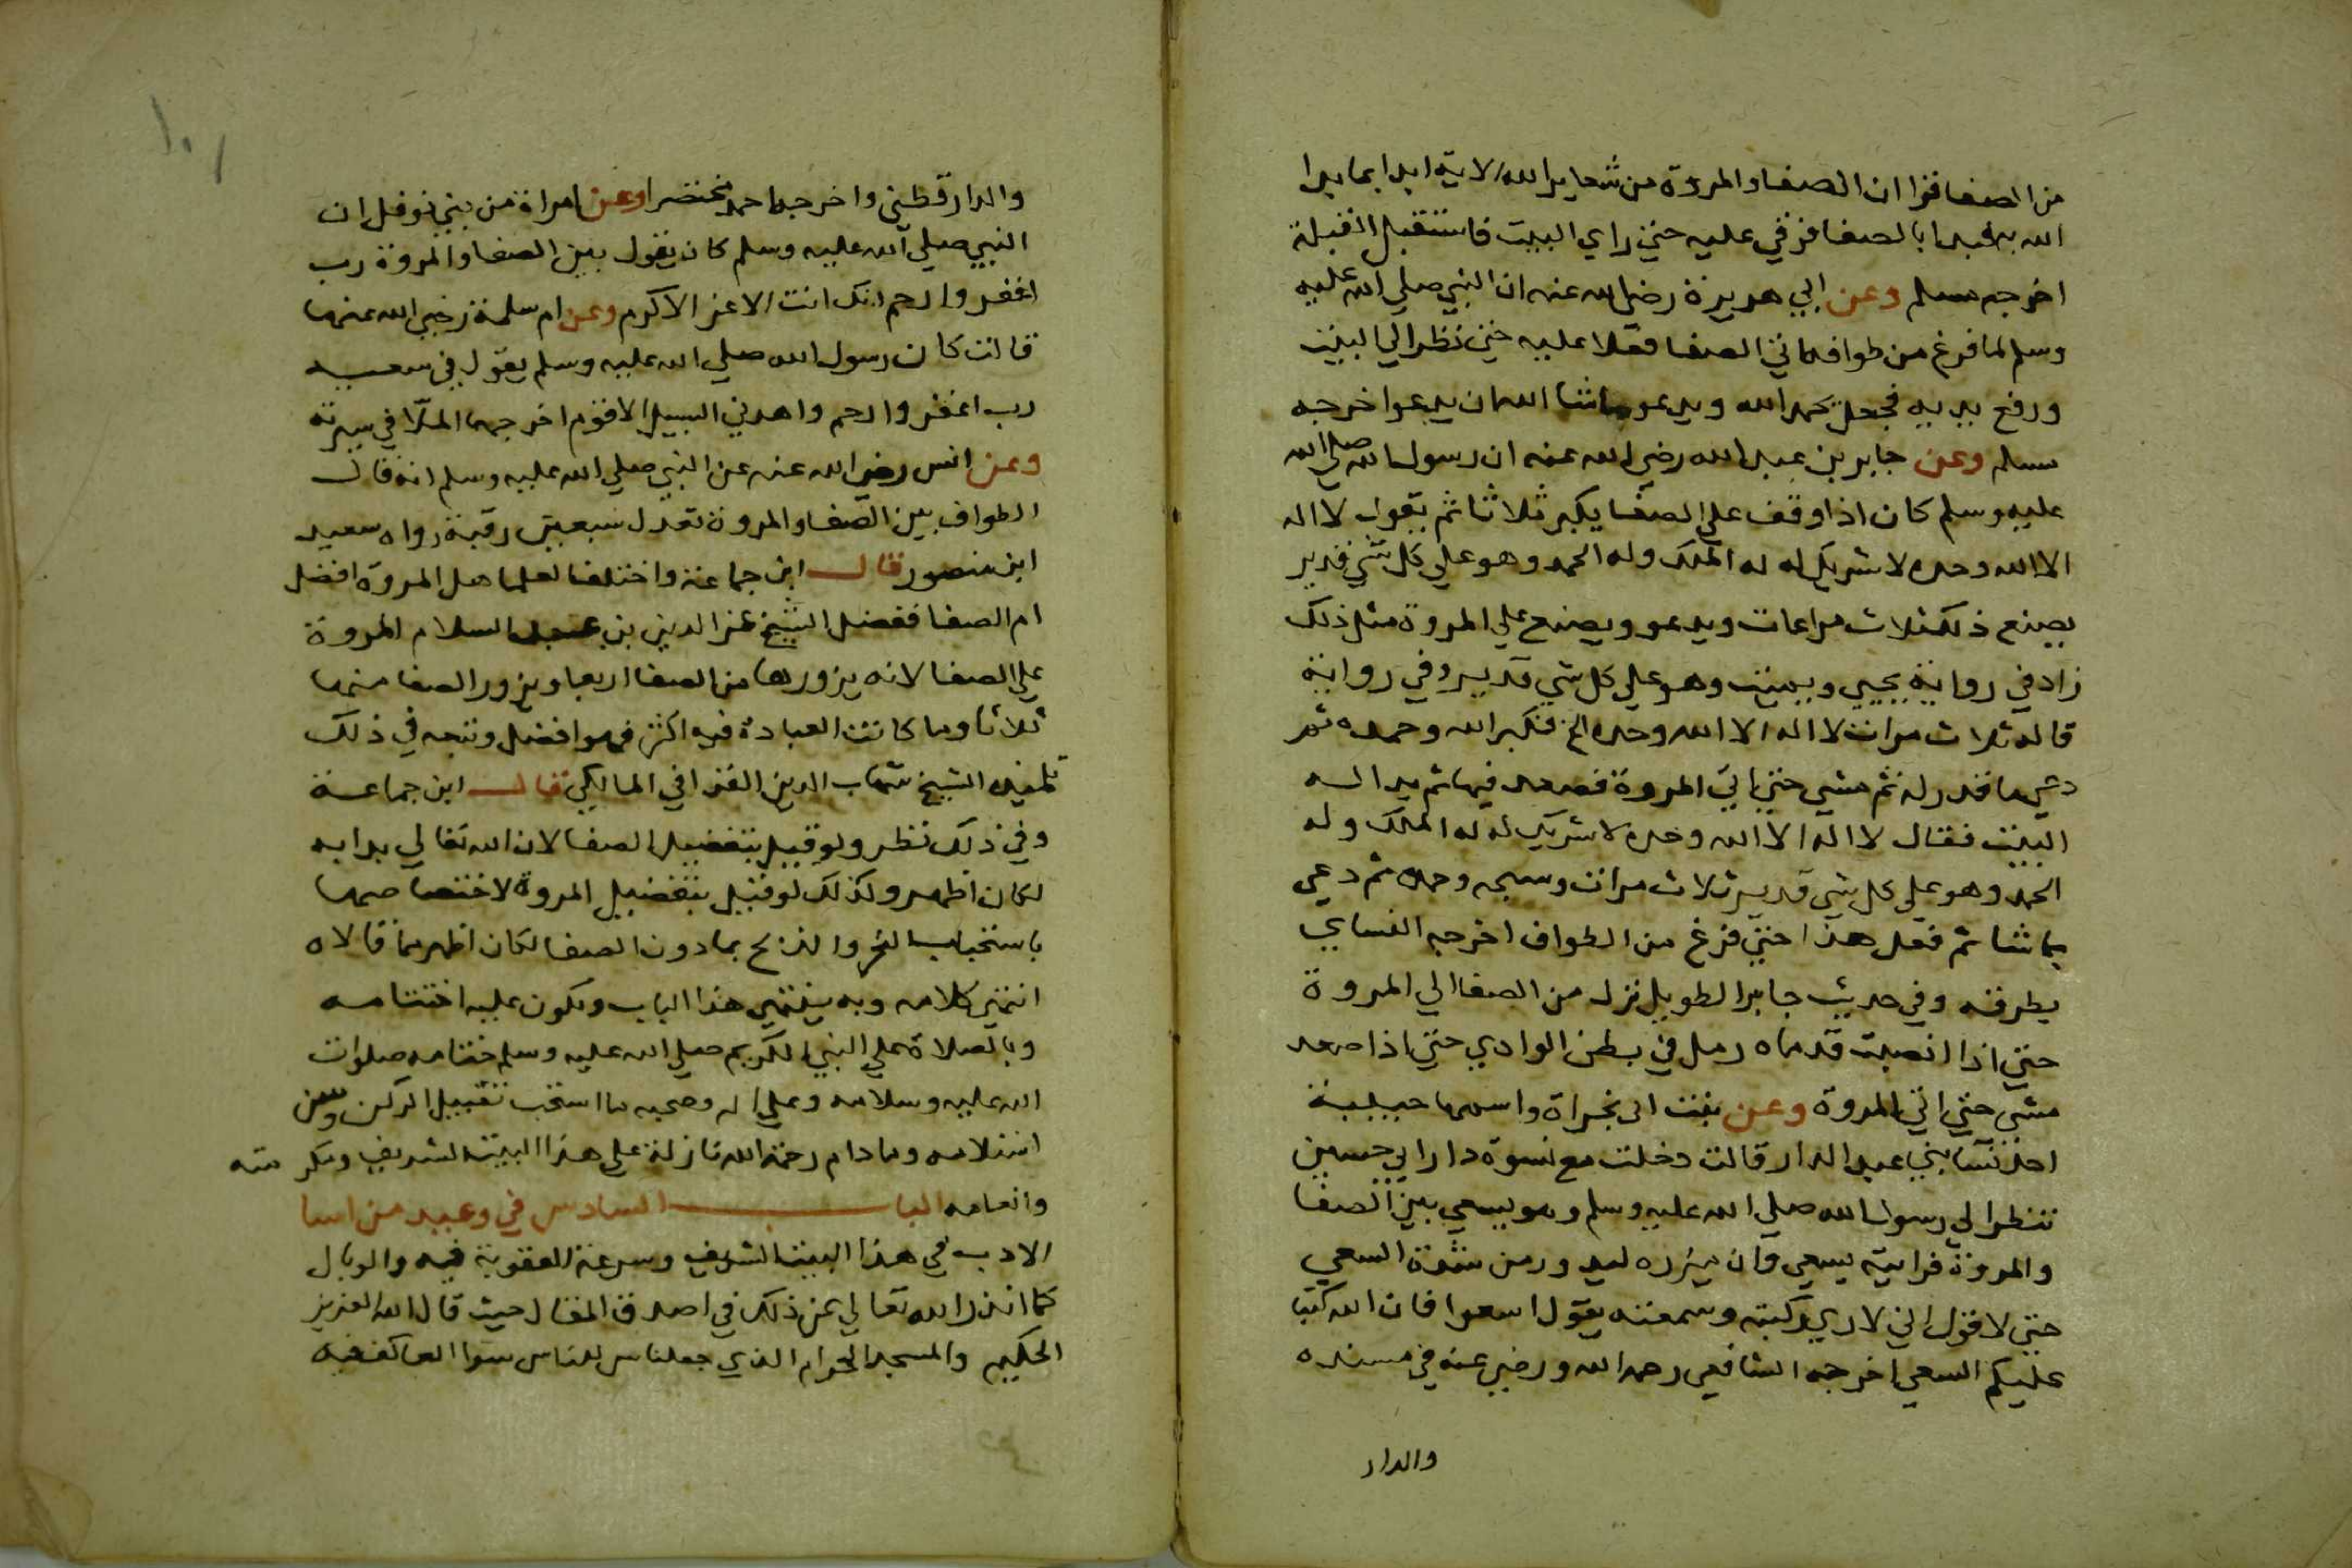 من الصفا فقرا ان الصفا والمروة من شعاير الله الاية ابدا بما بدا
الله به فبدا بالصفا فرقي عليه حتي راي البيت فاستقبل القبلة
اخرجه مسلم وعن ابي هريرة رضي الله عنه ان النبي صلي الله عليه
وسلم لما فرغ من طوافه اتي الصفا فعلا عليه حتي نظر الي البيت
ورفع يديه فجعل يحمد الله ويدعو ماشا الله ان يدعوا خرجه
مسلم وعن جابر بن عبد الله رضي الله عنه ان رسول الله صلي الله
عليه وسلم كان اذا وقف علي الصفا يكبر ثلاثا ثم يقول لا اله
الا الله وحده لا شريك له له الملك وله الحمد وهو علي كل شي قدير
يصنع ذلك ثلاث مراعات ويدعو ويصنع علي المروة مثل ذلك
زاد في رواية يحيي ويميت وهو علي كل شي قدير وفي رواية
قاله ثلاث مرات لا اله الا الله وحده الخ فكبر الله وحمده ثم
دعي ما قدر له ثم مشي حتي اتي المروة فصعد فيها ثم بدا له
البيت فقال لا اله الا الله وحده لا شريك له له الملك وله
الحمد وهو علي كل شي قدير ثلاث مرات وسبحه وحمده ثم دعي
بما شا ثم فعل هذا حتي فرغ من الطواف اخرجه النساي
بطرقه وفي حديث جابر الطويل نزل من الصفا الي المروة
حتي اذا انصبت قدماه رمل في بطن الوادي حتي اذا صعد
مشي حتي اتي المروة وعن بنت ابي تجراة واسمها حبيبة
احد نسا بني عبد الدار قالت دخلت مع نسوة دار ابي حسين
ننظر الي رسول الله صلي الله عليه وسلم وهو يسعي بين الصفا
والمروة فرايته يسعي وان ميزره ليدور من شدة السعي
حتي لا قول اني لا ري ركبته وسمعته يقول اسعوا فان الله كتب
عليكم السعي اخرجه الشافعي رحمه الله ورضي عنه في مسنده
والدار
١٠١
والدار قطني واخرجه احمد مختصرا وعن امراة من بني نوفل ان
النبي صلي الله عليه وسلم كان يقول بين الصفا والمروة رب
اغفر وارحم انك انت الاعز الاكرم وعن ام سلمة رضي الله عنها
قالت كان رسول الله صلي الله عليه وسلم يقول في سعيه
رب اغفر وارحم واهدني السبيل الاقوم اخرجهما الملا في سيرته
وعن انس رضي الله عنه عن النبي صلي الله عليه وسلم انه قال
الطواف بين الصفا والمروة تعدل سبعين رقبة رواه سعيد
ابن منصور قال ابن جماعة واختلف العلما هل المروة افضل
ام الصفا ففضل الشيخ عز الدين بن عبد السلام المروة
علي الصفا لانه يزورها من الصفا اربعا ويزور الصفا منها
ثلاثا وما كانت العبادة فيه اكثر فهو افضل وتبعه في ذلك
تلميذه الشيخ شهاب الدين القرافي المالكي قال ابن جماعة
وفي ذلك نظر ولو قيل بتفضيل الصفا لان الله تعالي بدا به
لكان اظهر وكذلك لو قيل بتفضيل المروة لاختصاصها
باستحباب النحر والذبح بها دون الصفا لكان اظهر مما قالاه
انتهي كلامه وبه ينتهي هذا الباب ويكون عليه اختتامه
وبالصلاة علي النبي الكريم صلي الله عليه وسلم ختامه صلوات
الله عليه وسلامه وعلي اله وصحبه ما استحب تقبيل الركن وسن
استلامه وما دام رحمة الله نازلة علي هذا البيت الشريف وتكرمته
وانعامه الباب السادس في وعيد من اسا
الادب في هذا البيت الشريف وسرعة العقوبة فيه والوبال
كما انذر الله تعالي عن ذلك في اصدق المقال حيث قال الله العزيز
الحكيم والمسجد الحرام الذي جعلناس للناس سوا العاكف فيه